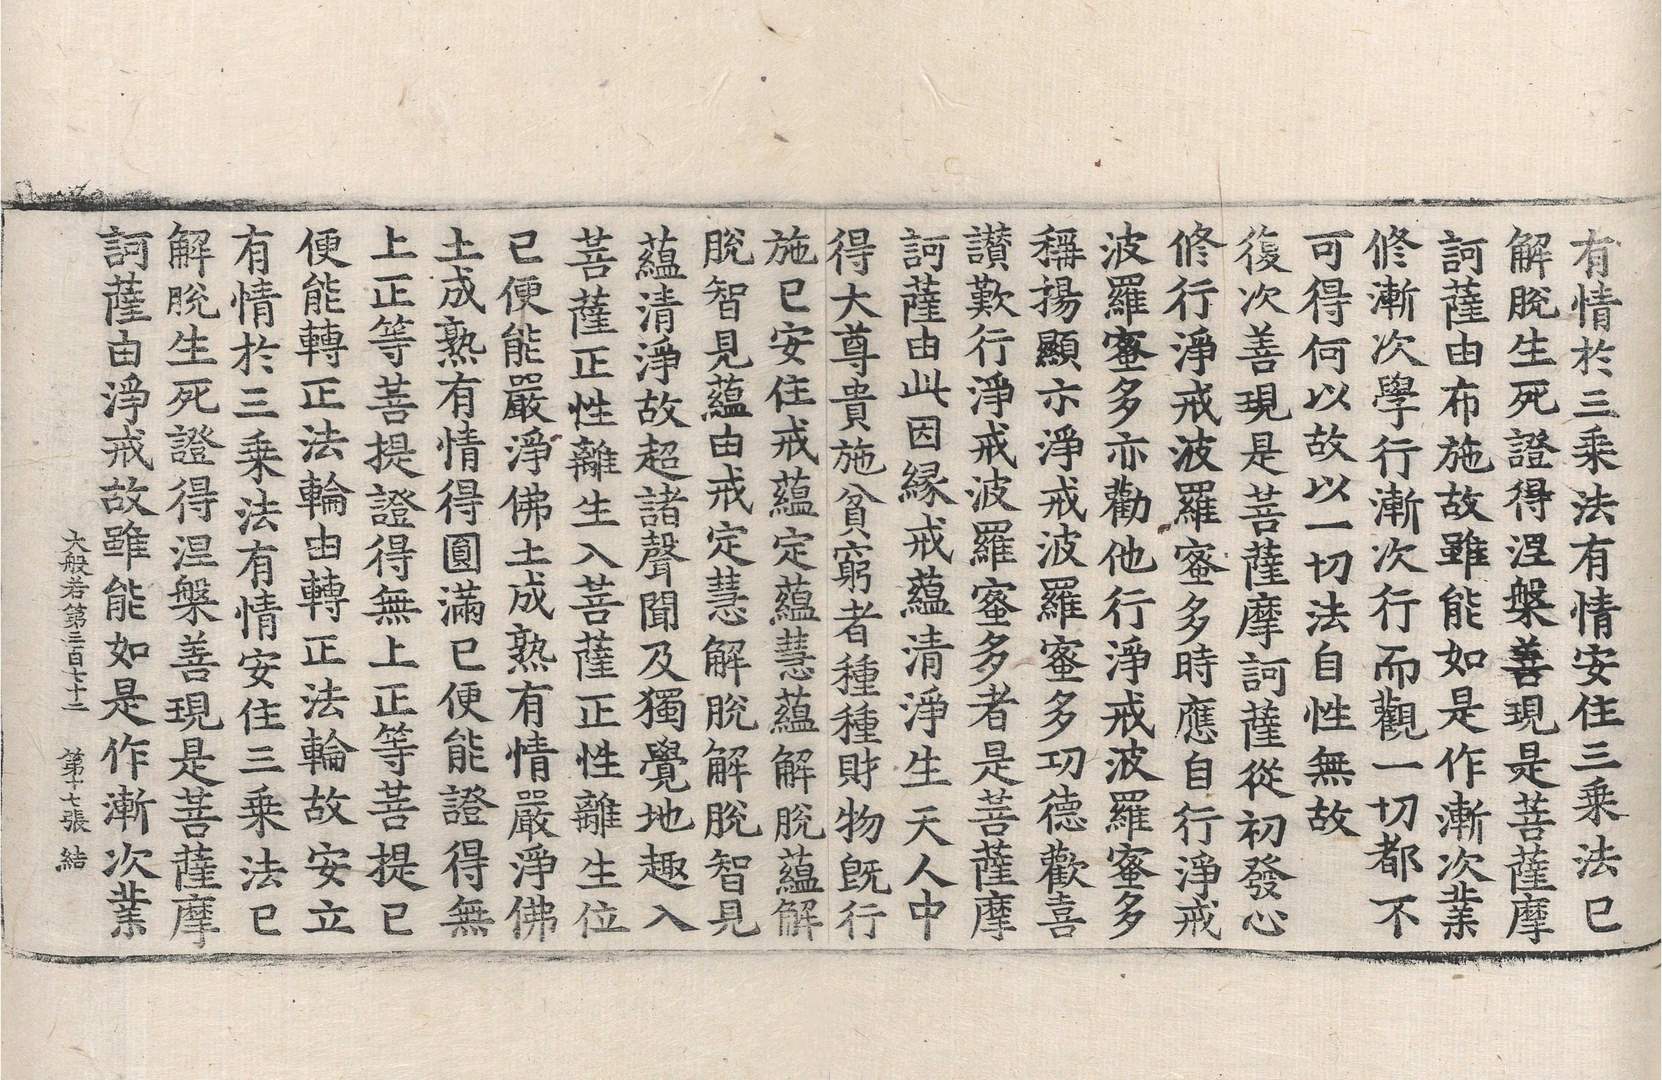 有情於三乘法有情安住三乘法已
解脫生死證得涅槃善現是菩薩摩
訶薩由布施故雖能如是作漸次業
修漸次學行漸次行而觀一切都不
可得何以故以一切法自性無故
復次善現是菩薩摩訶薩從初發心
修行淨戒波羅蜜多時應自行淨戒
波羅蜜多亦勸他行淨戒波羅蜜多
稱揚顯示淨戒波羅蜜多功德歡喜
讃歎行淨戒波羅蜜多者是菩薩摩
訶薩由此因緣戒蘊清淨生天人中
得大尊貴施貧窮者種種財物旣行
施已安住戒蘊定蘊慧蘊解脫蘊解
脫智見蘊由戒定慧解脫解脫智見
蘊清淨故超諸聲聞及獨覺地趣入
菩薩正性離生入菩薩正性離生位
已便能嚴淨佛土成熟有情嚴淨佛
土成熟有情得圓滿已便能證得無
上正等菩提證得無上正等菩提已
便能轉正法輪由轉正法輪故安立
有情於三乘法有情安住三乘法已
解脫生死證得涅槃善現是菩薩摩
訶薩由淨戒故雖能如是作漸次業
大般若第三百七十二 第十七張 結